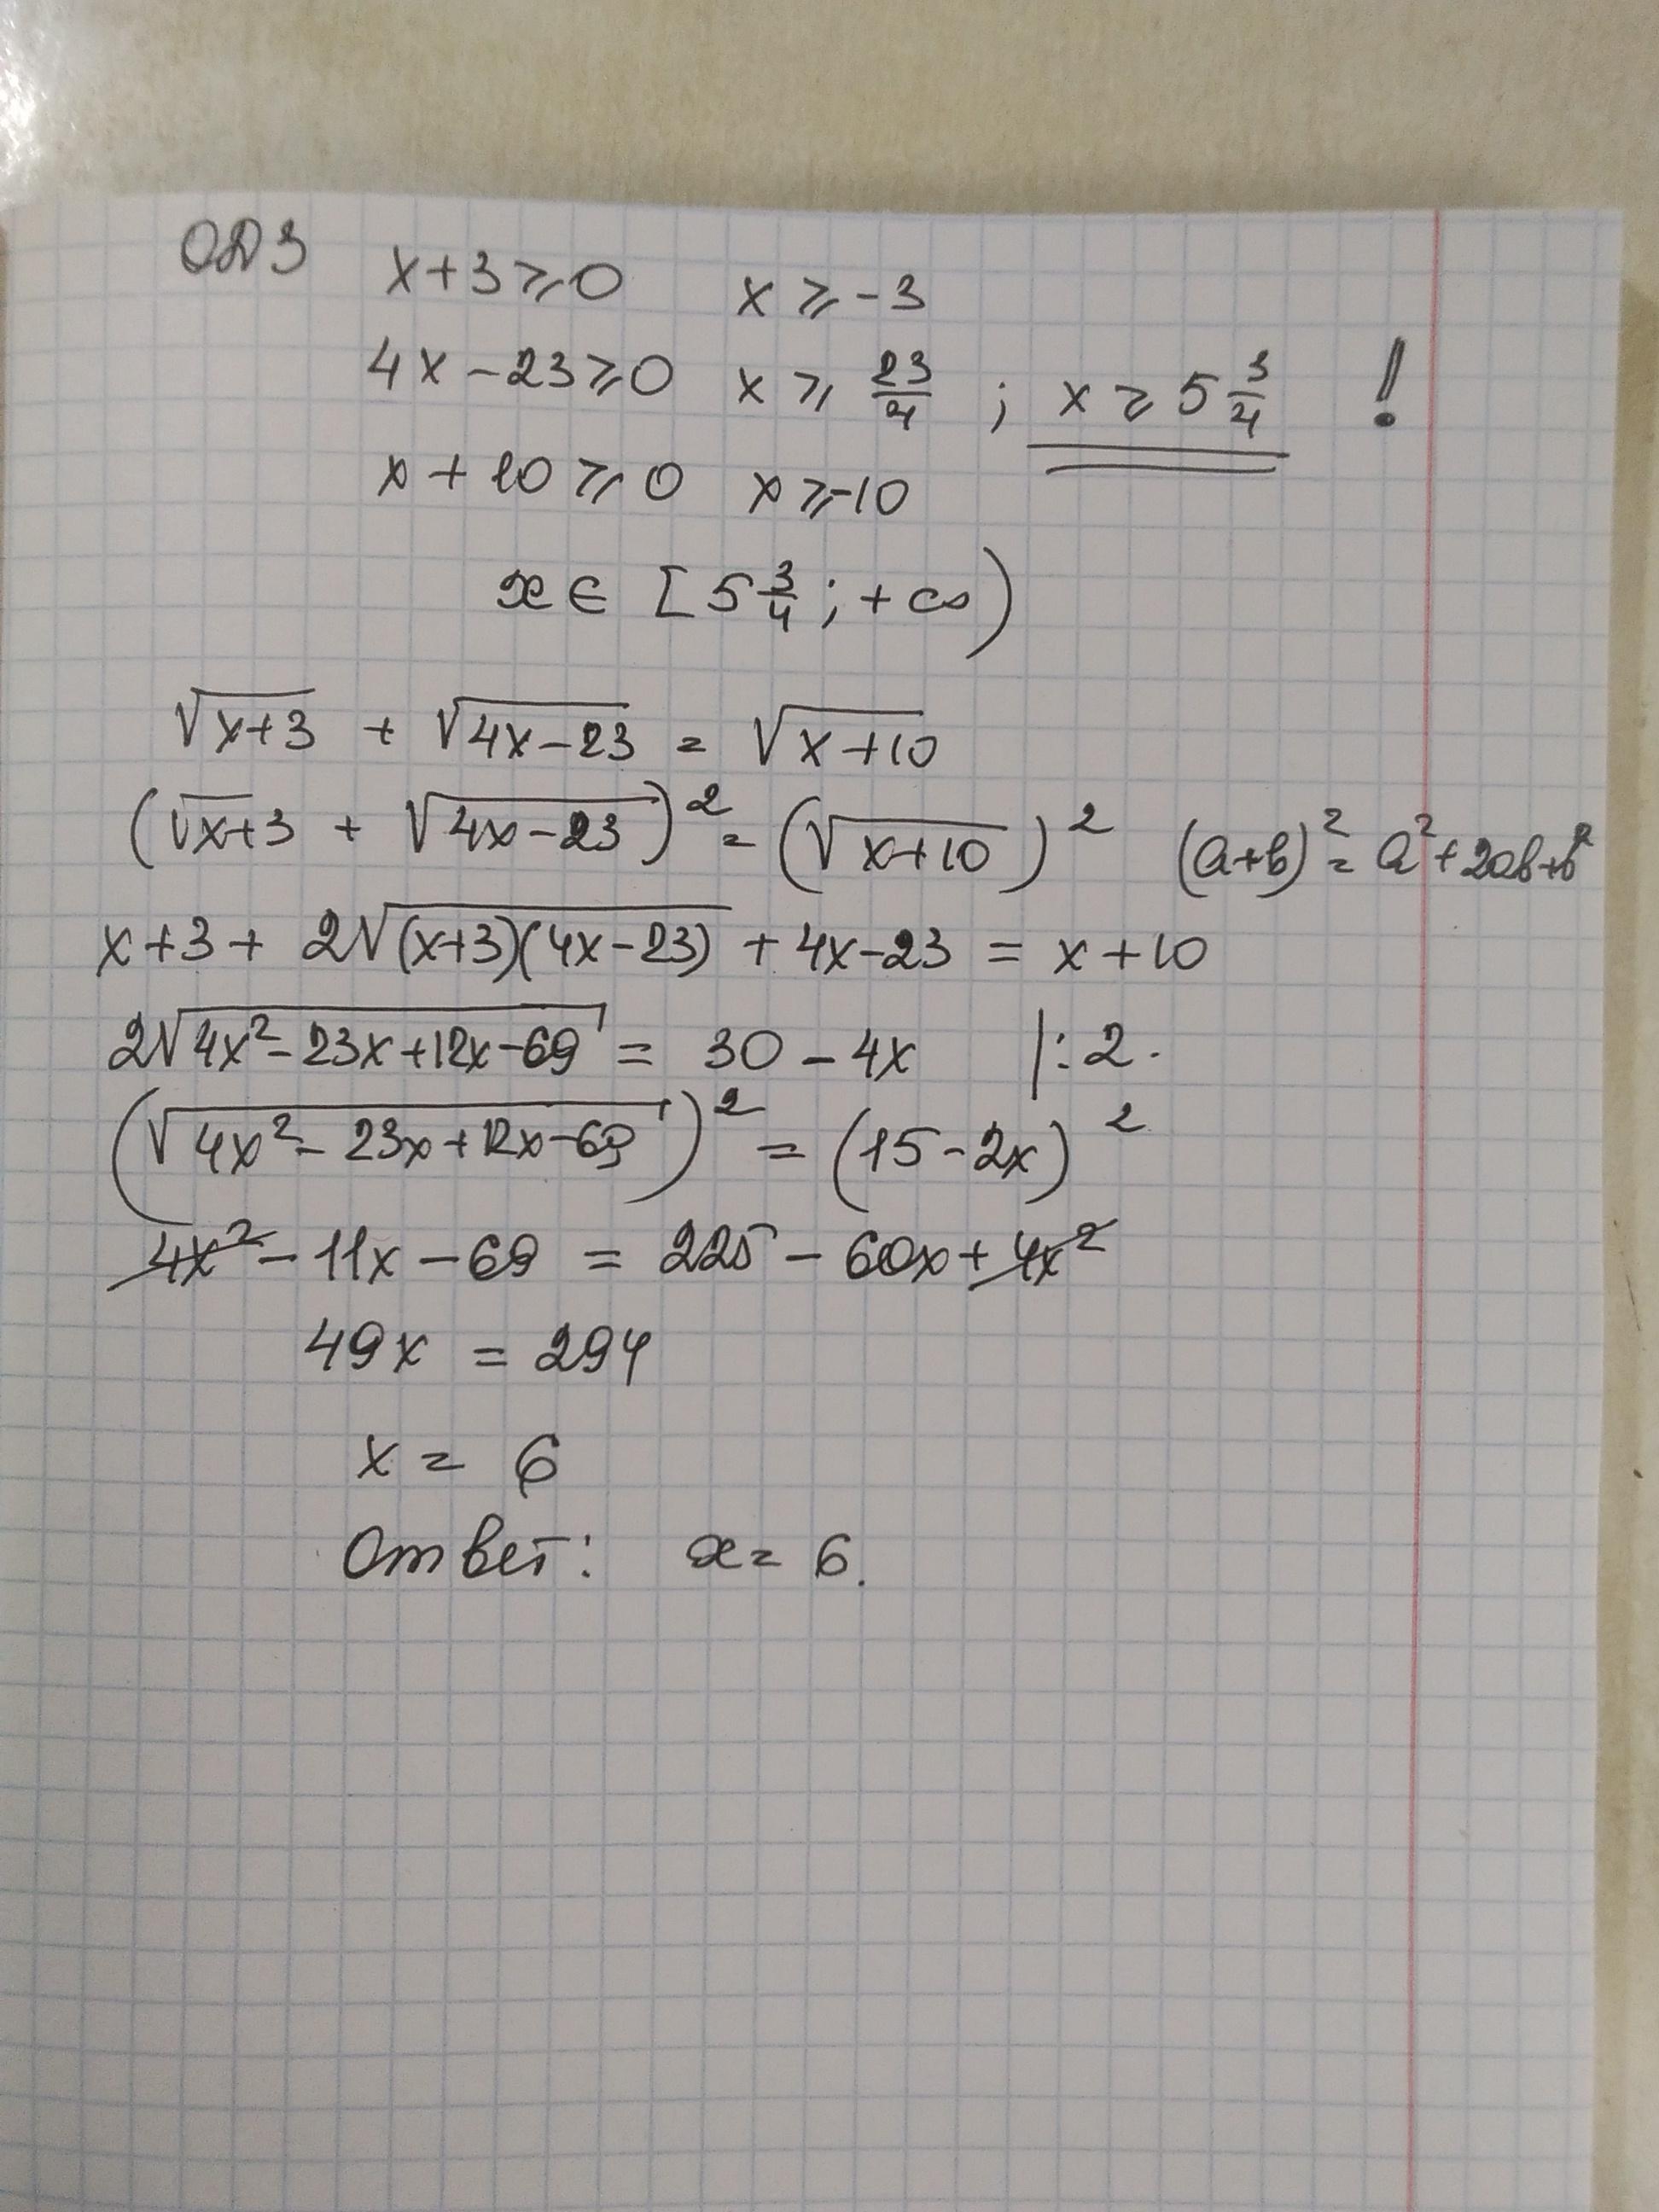 ОДЗ x+3⩾0 x ⩾ -3
4x-23⩾0 x ⩾ 23/4 ; x ⩾ 5 3/4 !
x+10⩾0 x⩾-10
x ∈ [5 3/4; +∞)
√(x+3) + √(4x-23) = √(x+10)
(√x+3 + √(4x-23))² = (√(x+10))² (a+b)² = a²+2ab+b²
x+3+ 2√((x+3)(4x-23)) + 4x-23 = x+10
2√(4x²-23x+12x-69) = 30-4x |:2.
(√(4x²-23x+12x-69))² = (15-2x)²
4x²-11x-69 = 225-60x+4x²
49x = 294
x = 6
Ответ: x= 6.